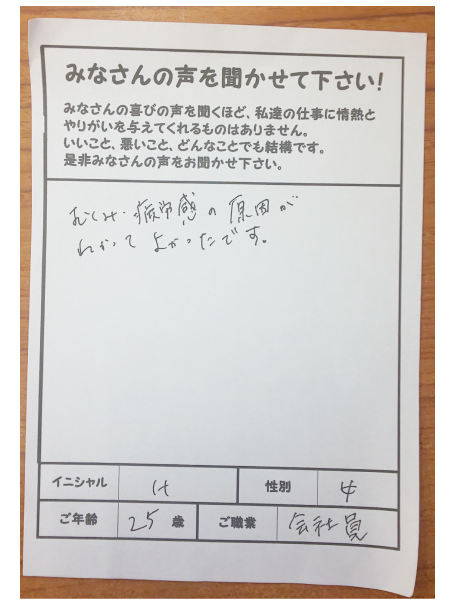 みなさんの声を聞かせて下さい!
みなさんの喜びの声を聞くほど、私達の仕事に情熱と
やりがいを与えてくれるものはありません。
いいこと、悪いこと、どんなことでも結構です。
是非みなさんの声をお聞かせ下さい。
むくみ・疲労感の原因が
わかってよかったです。
イニシャル H 性別 女
ご年齢 25 歳 ご職業 会社員